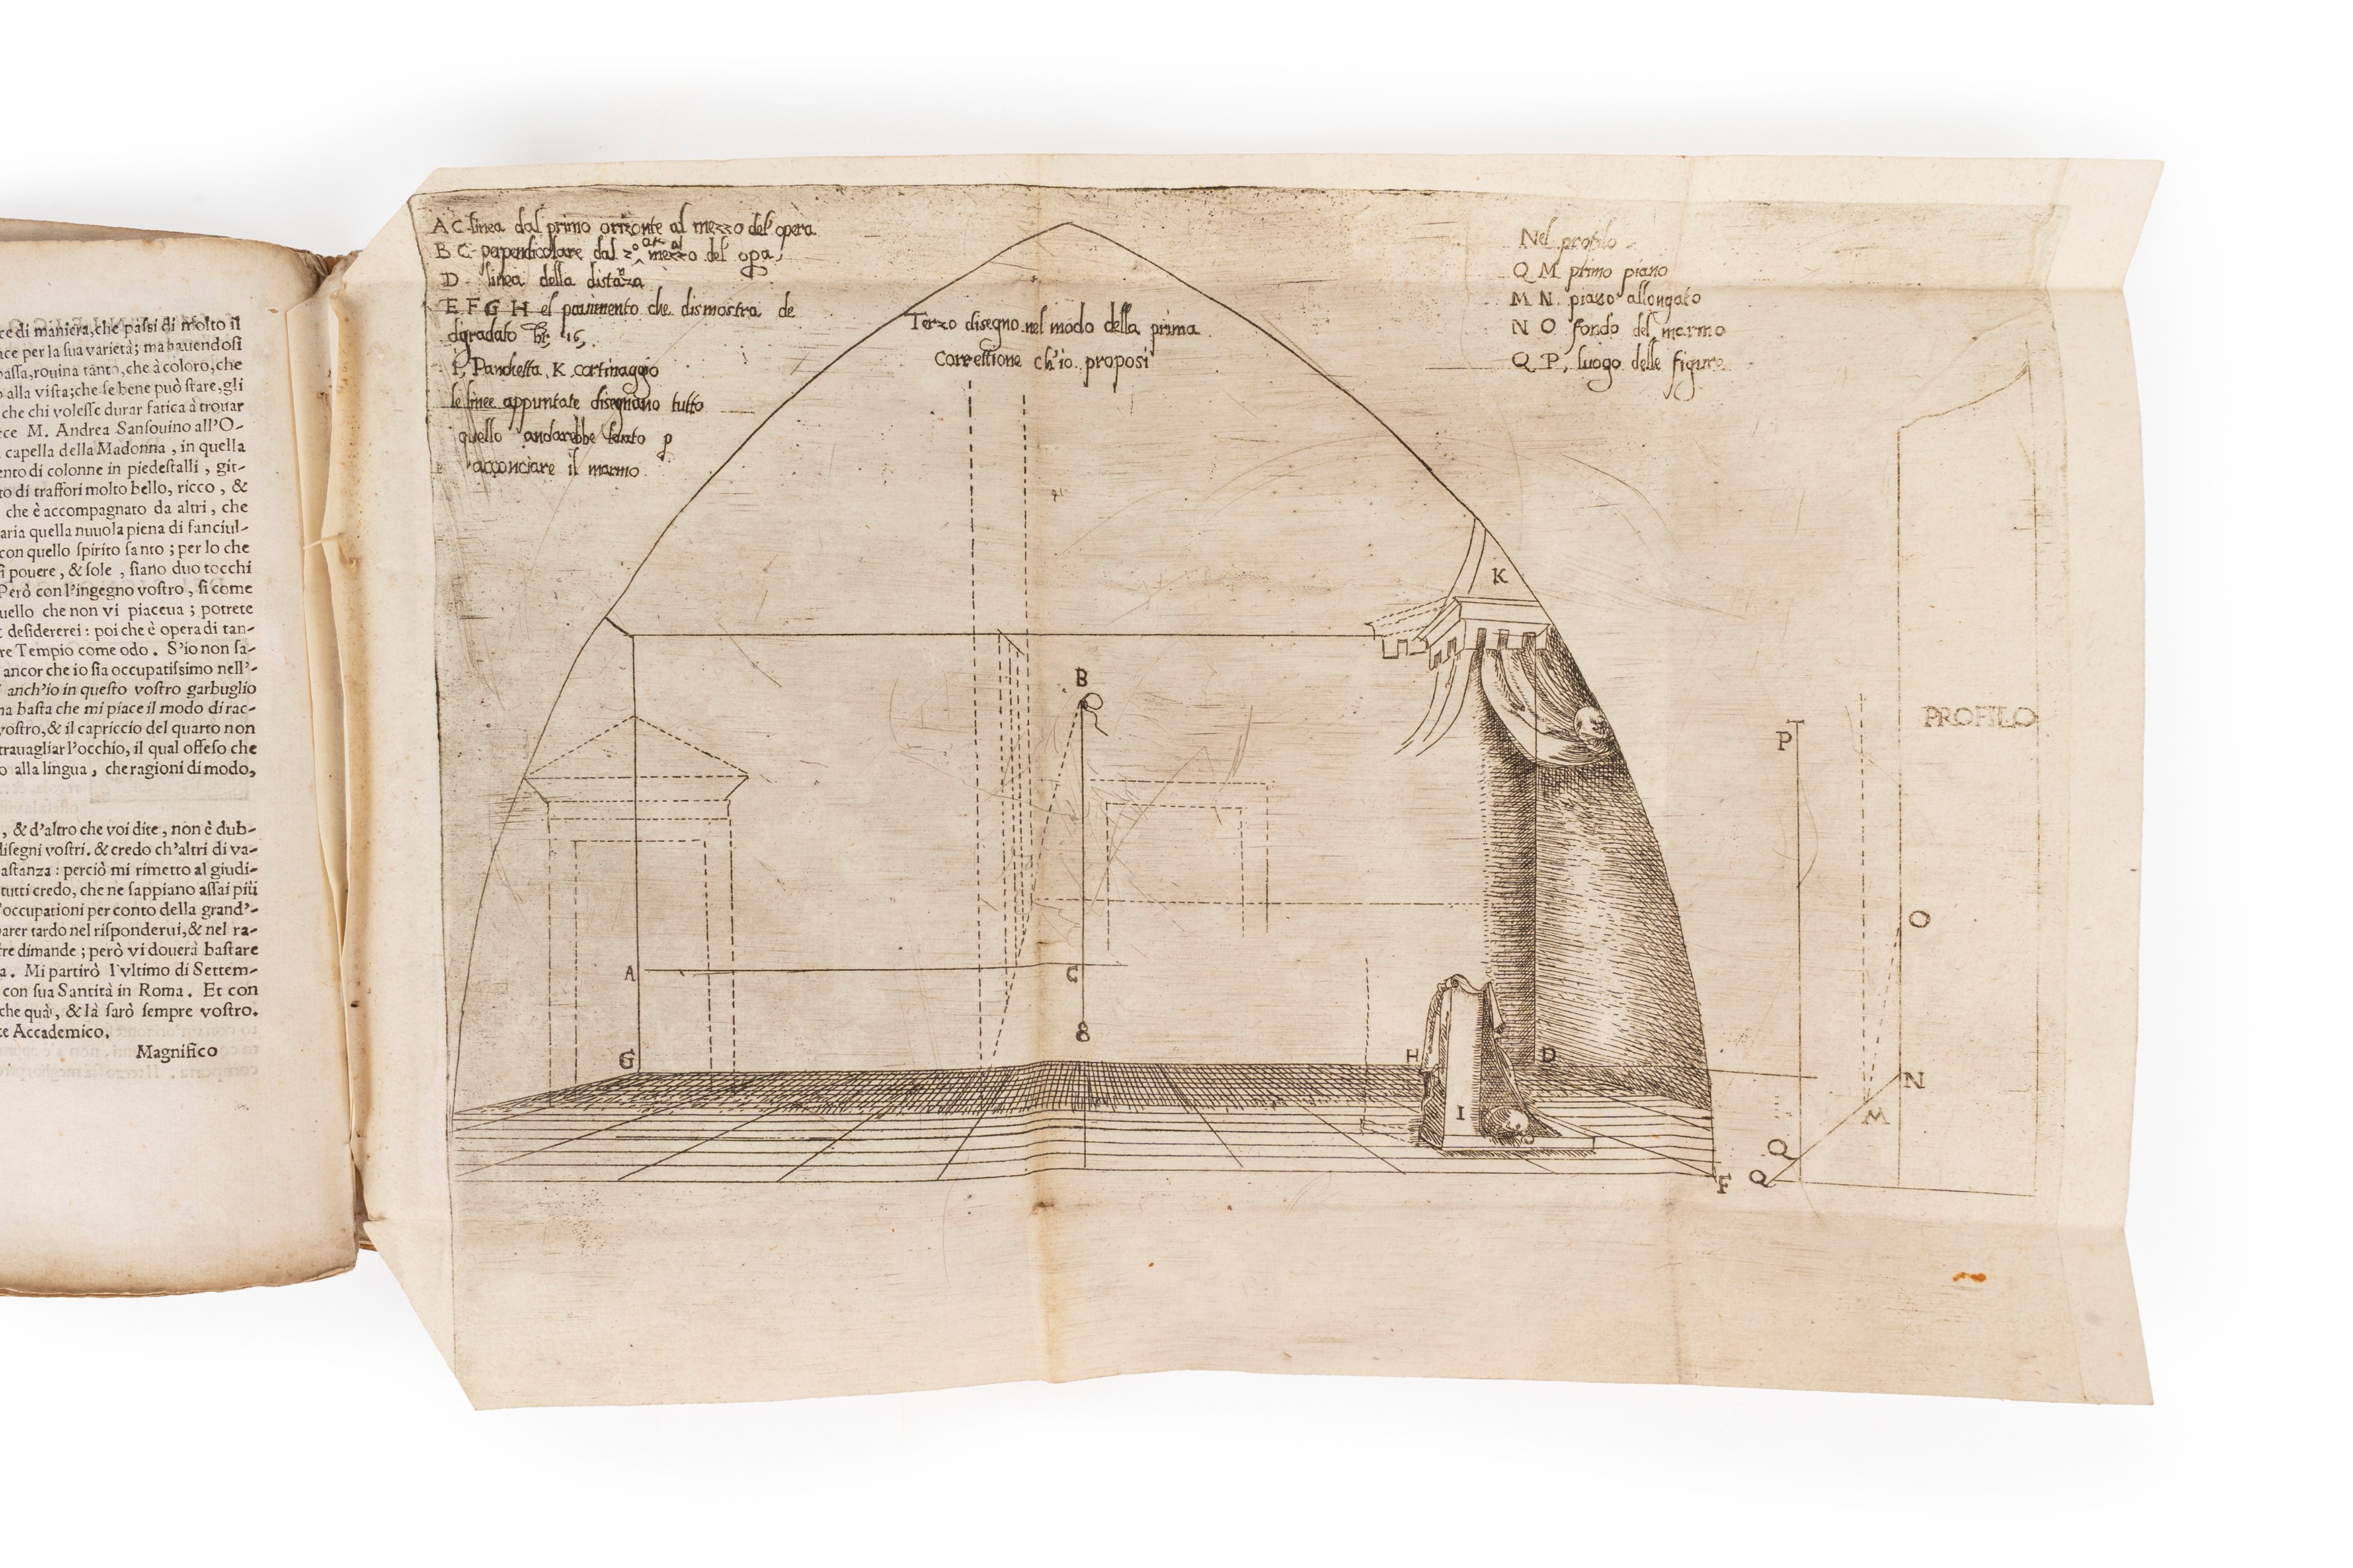 ce di maniera, che passi di molto il
ace per la sua varietà; ma hauendosi
bassa, rouina tanto, che à coloro, che
o alla vista; che se bene può stare, gli
che chi volesse durar fatica à trouar
ece M. Andrea Sansouino all'O-
capella della Madonna, in quella
ento di colonne in piedestalli, git-
to di traffori molto bello, ricco, &
che è accompagnato da altri, che
aria quella nuuola piena di fanciul-
con quello spirito santo; per lo che
sì pouere, & sole, siano duo tocchi
Però con l'ingegno vostro, si come
uello che non vi piaceua; potrete
desidererei: poi che è opera di tan-
re Tempio come odo. S'io non sa-
ancor che io sia occupatissimo nell'-
anch'io in questo vostro garbuglio
ma basta che mi piace il modo di rac-
vostro, & il capriccio del quarto non
trauagliar l'occhio, il qual offeso che
o alla lingua, che ragioni di modo,
, & d'altro che voi dite, non è dub-
disegni vostri. & credo ch'altri di va-
astanza: perciò mi rimetto al giudi-
tutti credo, che ne sappiano assai più
'occupationi per conto della grand'-
parer tardo nel risponderui, & nel ra-
tre dimande; però vi douerà bastare
a. Mi partirò l'vltimo di Settem-
con sua Santità in Roma. Et con
che quà, & là sarò sempre vostro.
te Accademico.
Magnifico
A C linea dal primo orizonte al mezzo del opera
B C perpendicolare dal 2º mezzo del opa
D linea della distaza
E F G H el pauimento che dismostra de
dgradato br. 16.
I, Panchetta, K cortinaggio
le linee appuntate disegnano tutto
quello andarebbe leuato p
acconciare il marmo
Terzo disegno nel modo della prima
Correttione ch'io proposi
Nel profilo
Q M primo piano
M N piano allongato
N O fondo del marmo
Q P, luogo delle figure
K
B
PROFILO
P
O
A
C
8
G
H
D
N
I
M
Q
Q
F